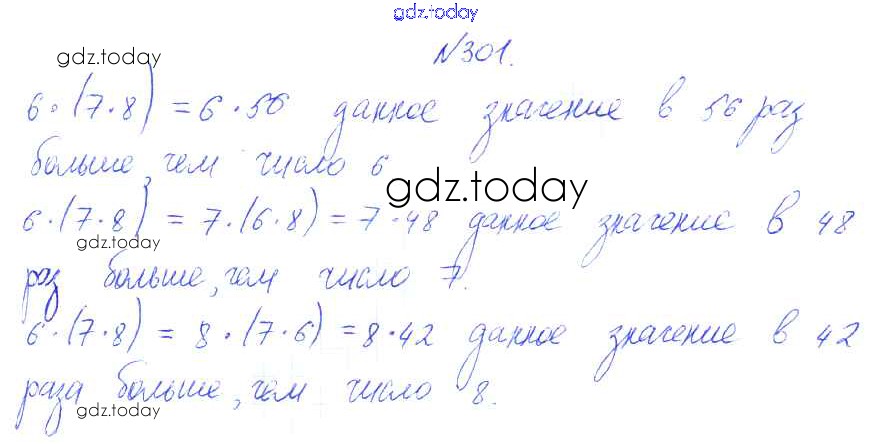 gdz.today
№301.
gdz.today
6·(7·8) = 6·56 данное значение в 56 раз
больше, чем число 6
gdz.today
6·(7·8) = 7·(6·8) = 7·48 данное значение в 48
gdz.today
раз больше, чем число 7.
6·(7·8) = 8·(7·6) = 8·42 данное значение в 42
раза больше, чем число 8.
gdz.today